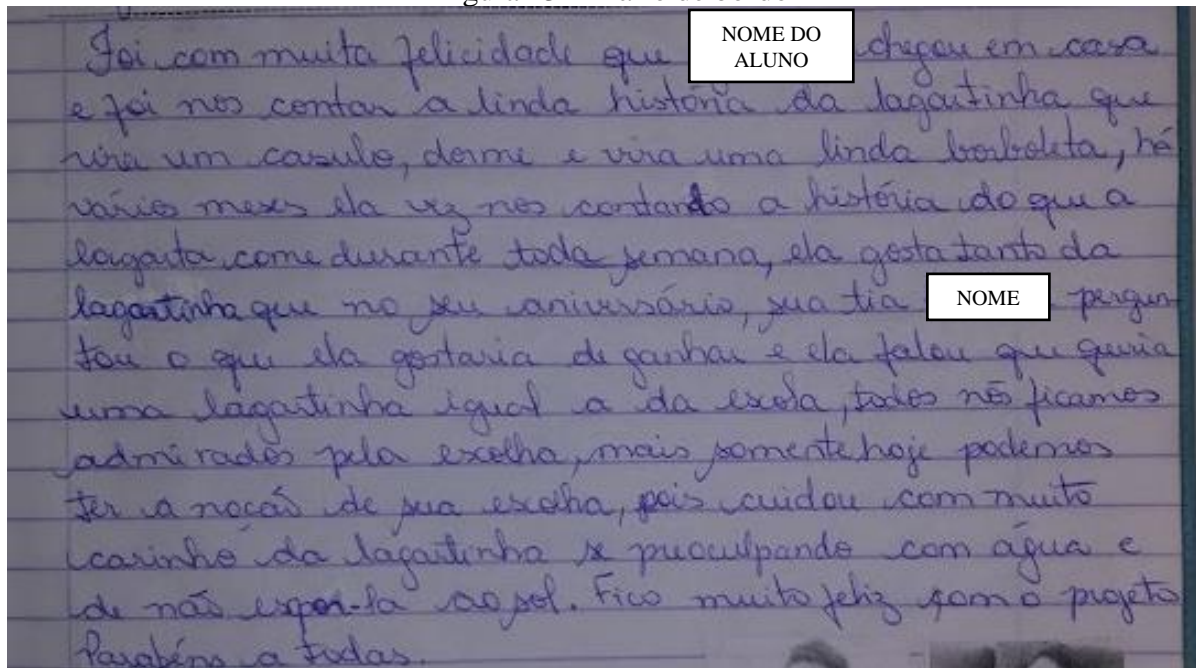 Foi com muita felicidade que NOME DO ALUNO chegou em casa
e foi nos contar a linda história da lagartinha que
vira um casulo, dorme e vira uma linda borboleta, há
vários meses ela vez nos contando a história do que a
lagarta come durante toda semana, ela gosta tanto da
lagartinha que no seu aniversário, sua tia NOME pergun-
tou o que ela gostaria de ganhar e ela falou que queria
uma lagartinha igual a da escola, todos nós ficamos
admirados pela escolha, mais somente hoje podemos
ter a noção de sua escolha, pois cuidou com muito
carinho da lagartinha se preoculpando com água e
de não expor-la ao sol. Fico muito feliz com o projeto
Parabéns a todas.